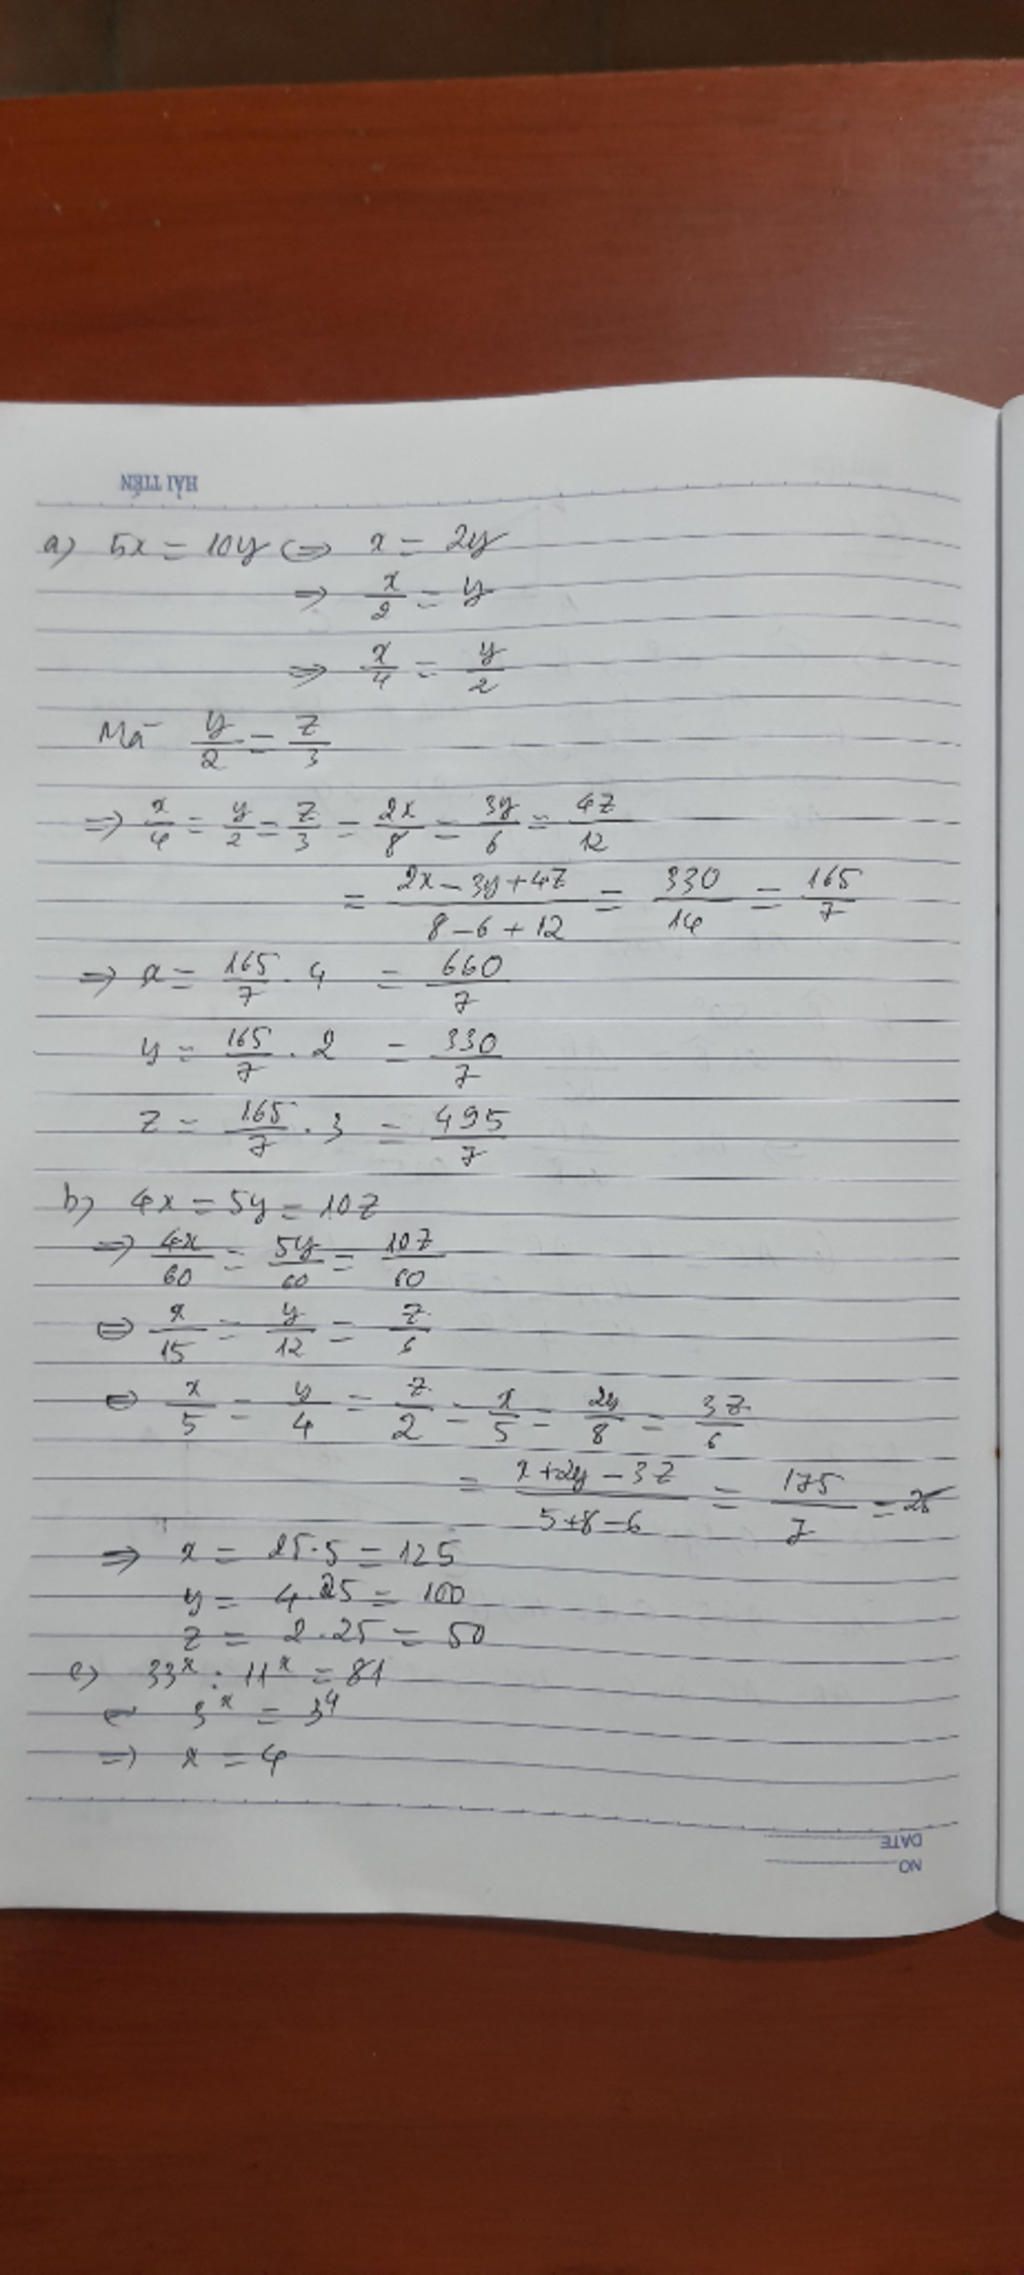 HẢI TIẾN
a) 5x = 10y <=> x = 2y
=> x/2 = y
=> x/4 = y/2
Mà y/2 = z/3
=> x/4 = y/2 = z/3 = 2x/8 = 3y/6 = 4z/12
= (2x - 3y + 4z)/(8 - 6 + 12) = 330/14 = 165/7
=> x = 165/7 . 4 = 660/7
y = 165/7 . 2 = 330/7
z = 165/7 . 3 = 495/7
b) 4x = 5y = 10z
=> 4x/60 = 5y/60 = 10z/60
<=> x/15 = y/12 = z/6
<=> x/5 = y/4 = z/2 = x/5 = 2y/8 = 3z/6
= (x + 2y - 3z)/(5 + 8 - 6) = 175/7 = 25
=> x = 25.5 = 125
y = 4.25 = 100
z = 2.25 = 50
c) 33^x : 11^x = 81
<=> 3^x = 3^4
=> x = 4
DATE
NO